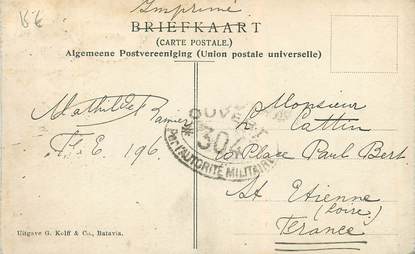 15€
Imprimé
BRIEFKAART
(CARTE POSTALE.)
Algemeene Postvereeniging (Union postale universelle)
Mathilde
F. E. 196
OUVERT
304
Par l'AUTORITÉ MILITAIRE
Monsieur
Cattin
Place Paul Bert
St Etienne
(Loire)
France
Uitgave G. Kolff & Co., Batavia.